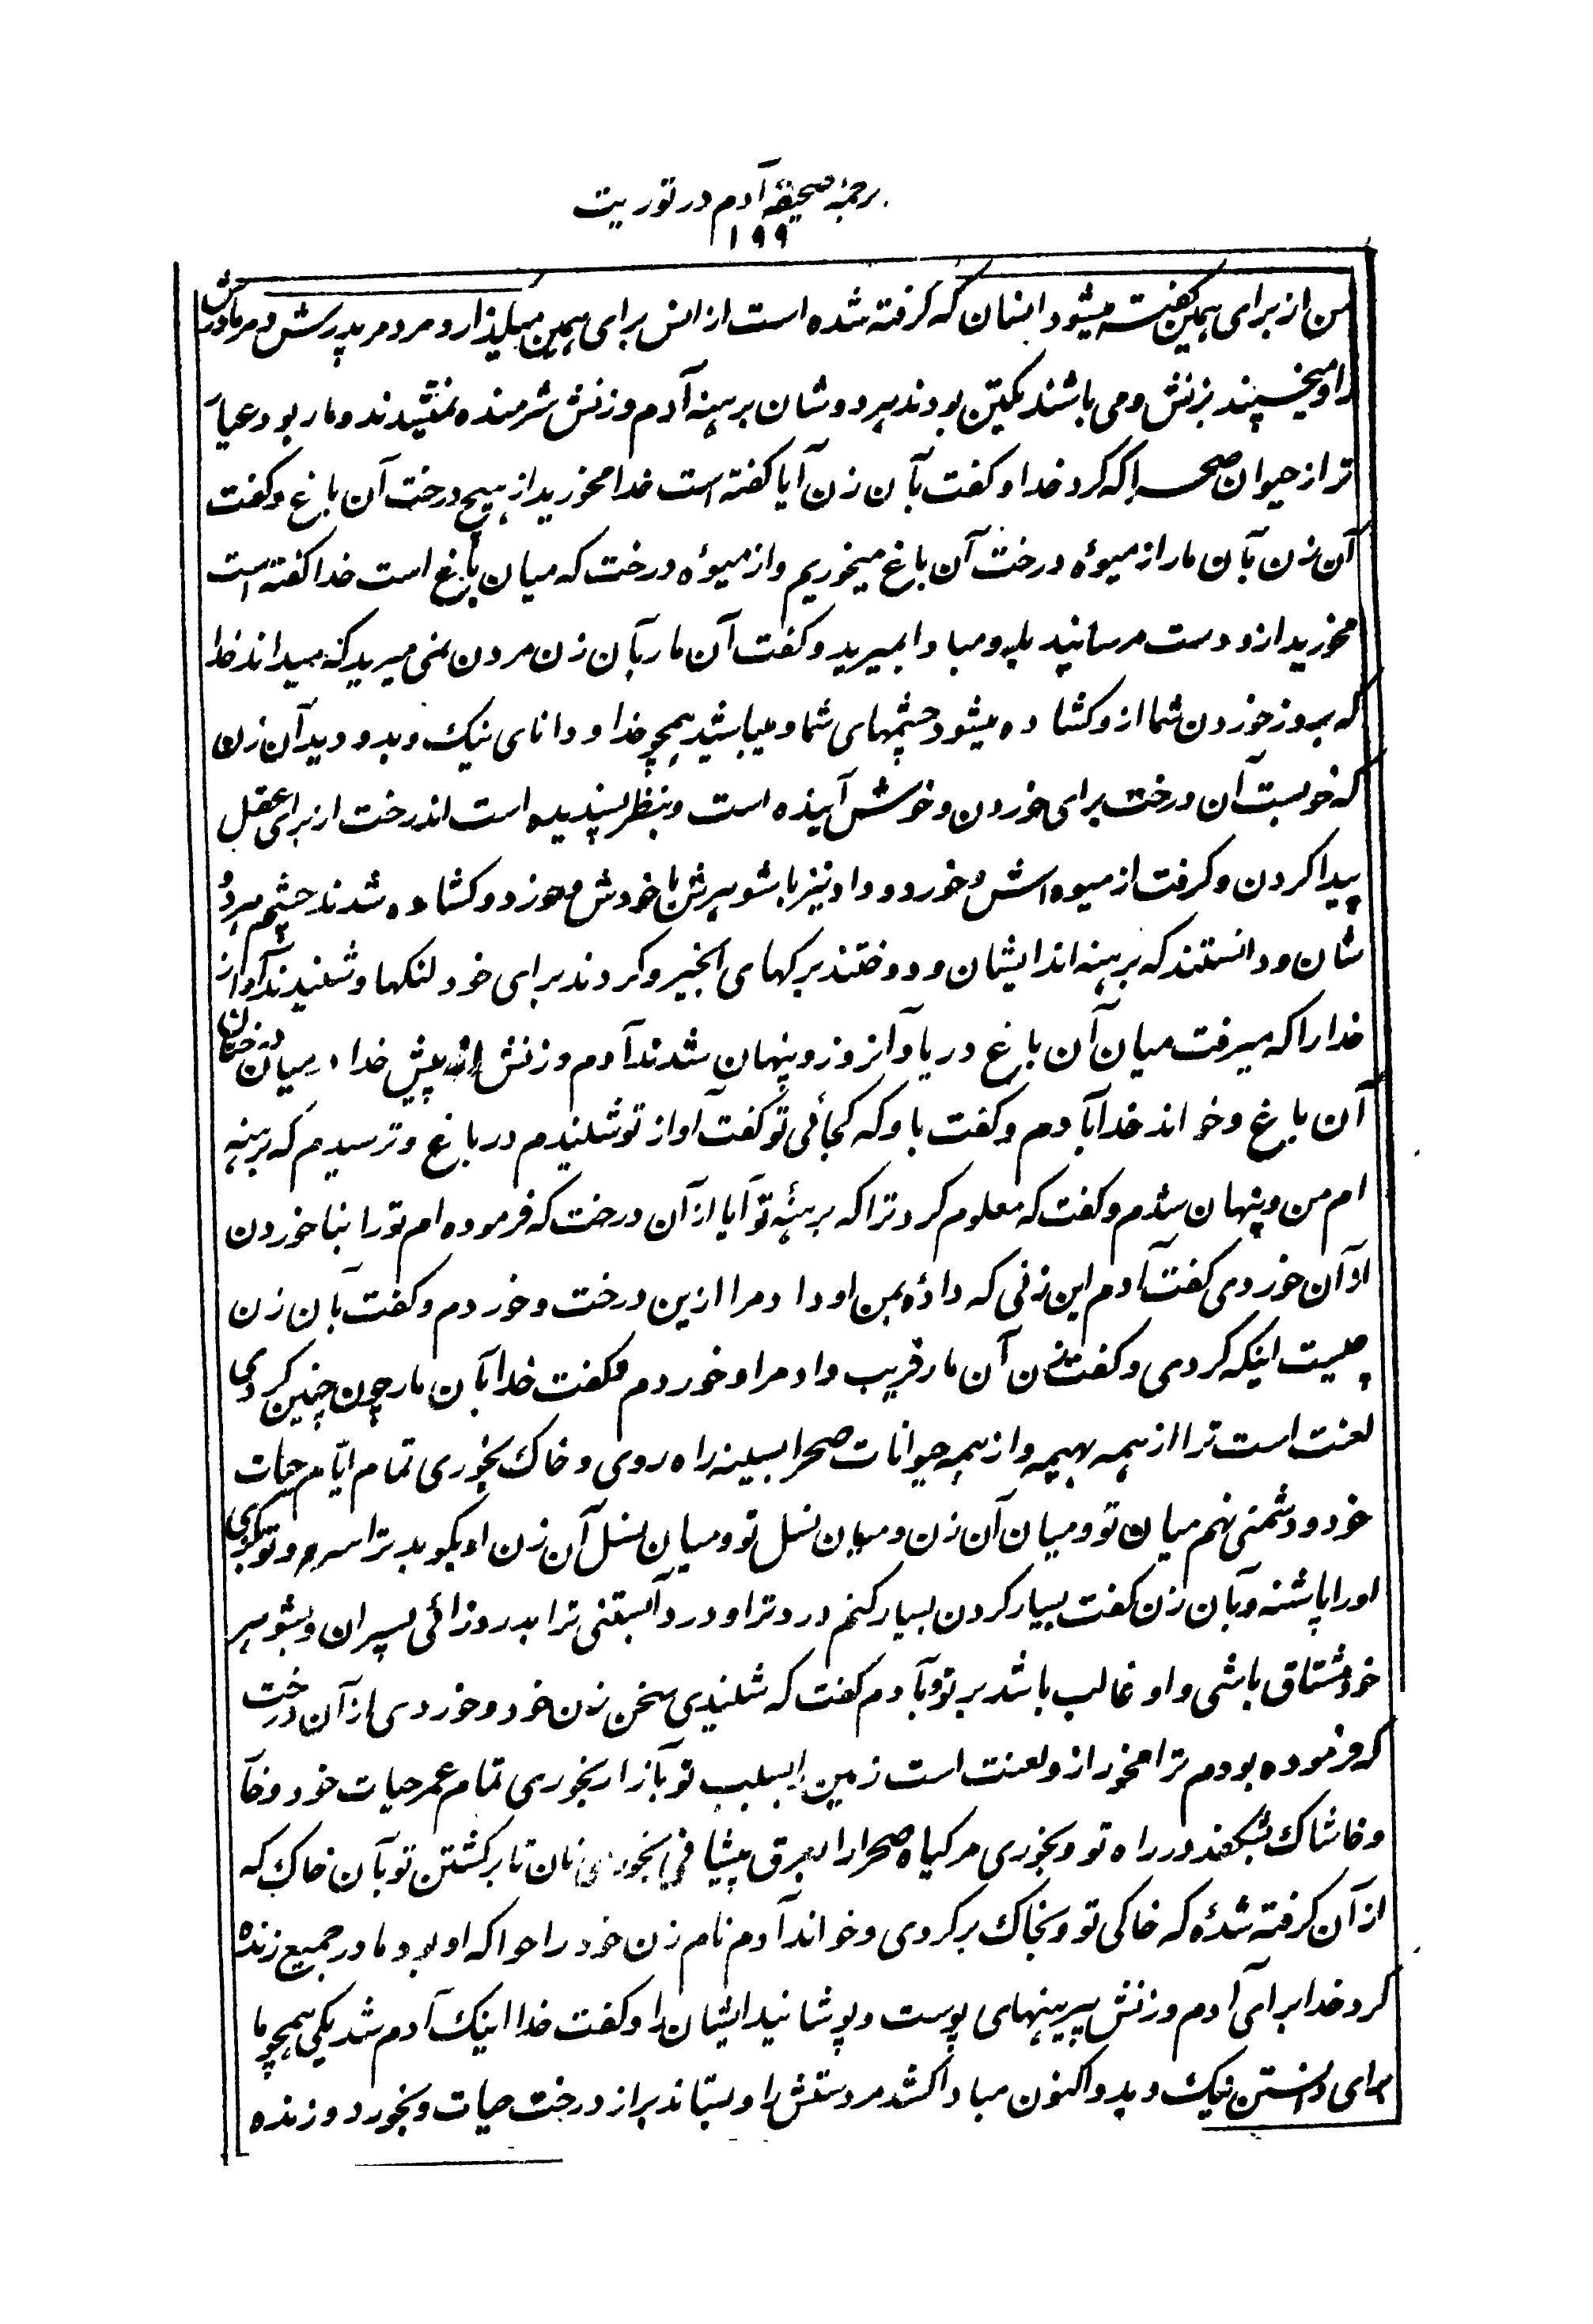 ترجمهٔ صحیفهٔ آدم در توریت
۱۹۹
من از برای همین گفته میشود انسان که گرفته شده است از انس برای همین میگذارد مرد مر پدرش و مر مادرش
را و میخسپند بزنش و می باشند یکتن بودند هر دوشان برهنه آدم و زنش شرمنده نمیشدند و مار بود عیار
تر از حیوان صحرا که کرد خدا و گفت بآن زن آیا گفته است خدا مخورید از هیچ درخت آن باغ و گفت
آن زن بآن مار از میوهٔ درخت آن باغ میخوریم و از میوهٔ درخت که میان باغ است خدا گفته است
مخورید ازو و دست مرسانید باو مبادا بمیرید و گفت آن مار بآن زن مردن نمی میرید که میداند خدا
که بروز خوردن شما ازو کشاده میشود چشمهای شما و میباشید همچو خدا و دانای نیک و بد و دید آن زن
که خوبست آن درخت برای خوردن و خوش آینده است و بنظر پسندیده است اندرخت از برای عقل
پیدا کردن و گرفت از میوه اش و خورد و داد نیز با شوهرش با خودش و خورد و کشاده شدند چشم هردو
شان و دانستند که برهنه اند ایشان و دوختند برکهای انجیر و کردند برای خود لنکها و شنیدند آواز
خدا را که میرفت میان آن باغ در باد آنروز و پنهان شدند آدم و زنش از پیش خدا در میان درختان
آن باغ و خواند خدا بآدم و گفت باو که کجائی تو گفت آواز تو شنیدم در باغ و ترسیدم که برهنه
ام من و پنهان شدم و گفت که معلوم کرد ترا که برهنهٔ تو آیا از آن درخت که فرموده ام تورا بنا خوردن
از آن خوردی گفت آدم این زنی که دادهٔ بمن او داد مرا ازین درخت و خوردم و گفت بآن زن
چیست اینکه کردی و گفت زن آن مار فریب داد مرا و خوردم و گفت خدا بآن مار چون چنین کردی
لعنت است ترا از همه بهیمه و از همه حیوانات صحرا بسینه راه روی و خاک بخوری تمام ایّام حیات
خود و دشمنی نهم میان تو و میان آن زن و میان نسل تو و میان نسل آن زن او بکوبد ترا سر و تو بکزی
اورا پاشنه و بآن زن گفت بسیار کردن بسیار کنم درد ترا و درد آبستنی ترا بدرد زائی پسران و بشوهر
خود مشتاق باشی و او غالب باشد بر تو و بآدم گفت که شنیدی سخن زن خود و خوردی از آن درخت
که فرموده بودم ترا مخور ازو لعنت است زمین را بسبب تو بآزار بخوری تمام عمر حیات خود و خار
و خاشاک بشکفد در راه تو و بخوری مر گیاه صحرا را بعرق پیشانی بخوری نان تا برگشتن تو بآن خاک که
از آن گرفته شدهٔ که خاکی تو و بخاک برگردی و خواند آدم نام زن خود را حوا که او بود مادر جمیع زنده
کرد خدا برای آدم و زنش پیرهنهای پوست و پوشانید ایشان را و گفت خدا اینک آدم شد یکی همچو ما
برای دانستن نیک و بد و اکنون مبادا کشد مر دستش را و بستاند بر از درخت حیات و بخورد و زنده